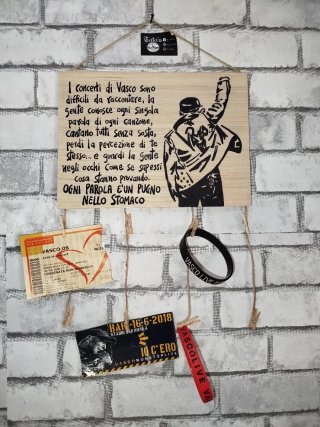 I CONCERTI DI VASCO SONO
DIFFICILI DA RACCONTARE, LA
GENTE CONOSCE OGNI SINGOLA
PAROLA DI OGNI CANZONE,
CANTANO TUTTI SENZA SOSTA,
PERDI LA PERCEZIONE DI TE
STESSO... E GUARDI LA GENTE
NEGLI OCCHI COME SE SAPESSI
COSA STANNO PROVANDO.
OGNI PAROLA E' UN PUGNO
NELLO STOMACO
VASCO 08
VASCO LIVE
BARI-16-6-2018
STADIO SAN NICOLA
IO C'ERO
VASCONONSTOPLIVE
VASCOLIVE